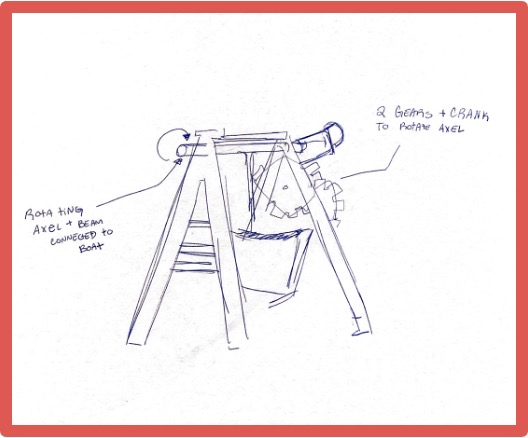 2 GEARS + CRANK
TO ROTATE AXEL
ROTATING
AXEL + BEAM
CONNECTED TO
BOAT